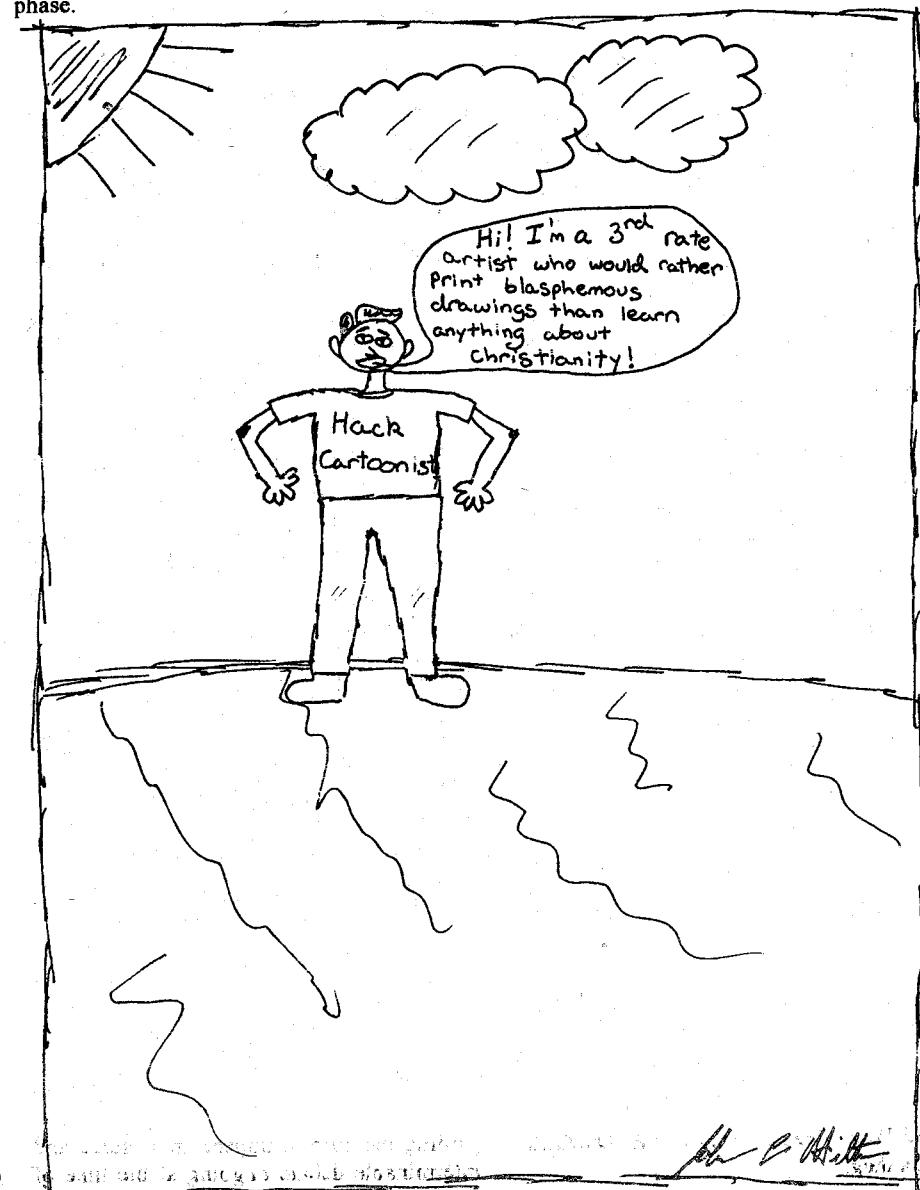 phase.
Hi! I'm a 3rd rate
artist who would rather
print blasphemous
drawings than learn
anything about
Christianity!
Hack
Cartoonist